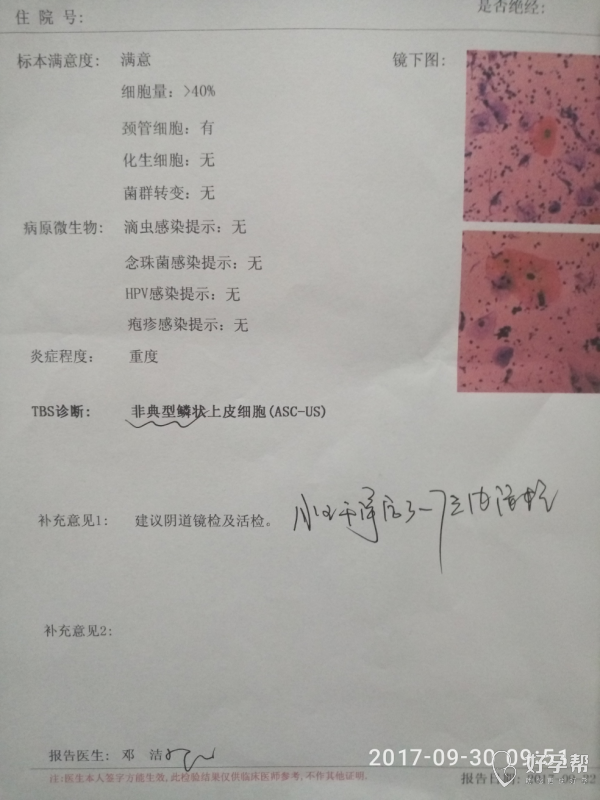 住 院 号:
是否绝经:
标本满意度: 满意
镜下图:
细胞量: >40%
颈管细胞: 有
化生细胞: 无
菌群转变: 无
病原微生物: 滴虫感染提示: 无
念珠菌感染提示: 无
HPV感染提示: 无
疱疹感染提示: 无
炎症程度: 重度
TBS诊断: 非典型鳞状上皮细胞(ASC-US)
补充意见1: 建议阴道镜检及活检。
补充意见2:
报告医生: 邓 洁
2017-09-30 09:51
好孕帮
注:医生本人签字方能生效,此检验结果仅供临床医师参考,不作其他证明.
报告日期: 2017-09-22